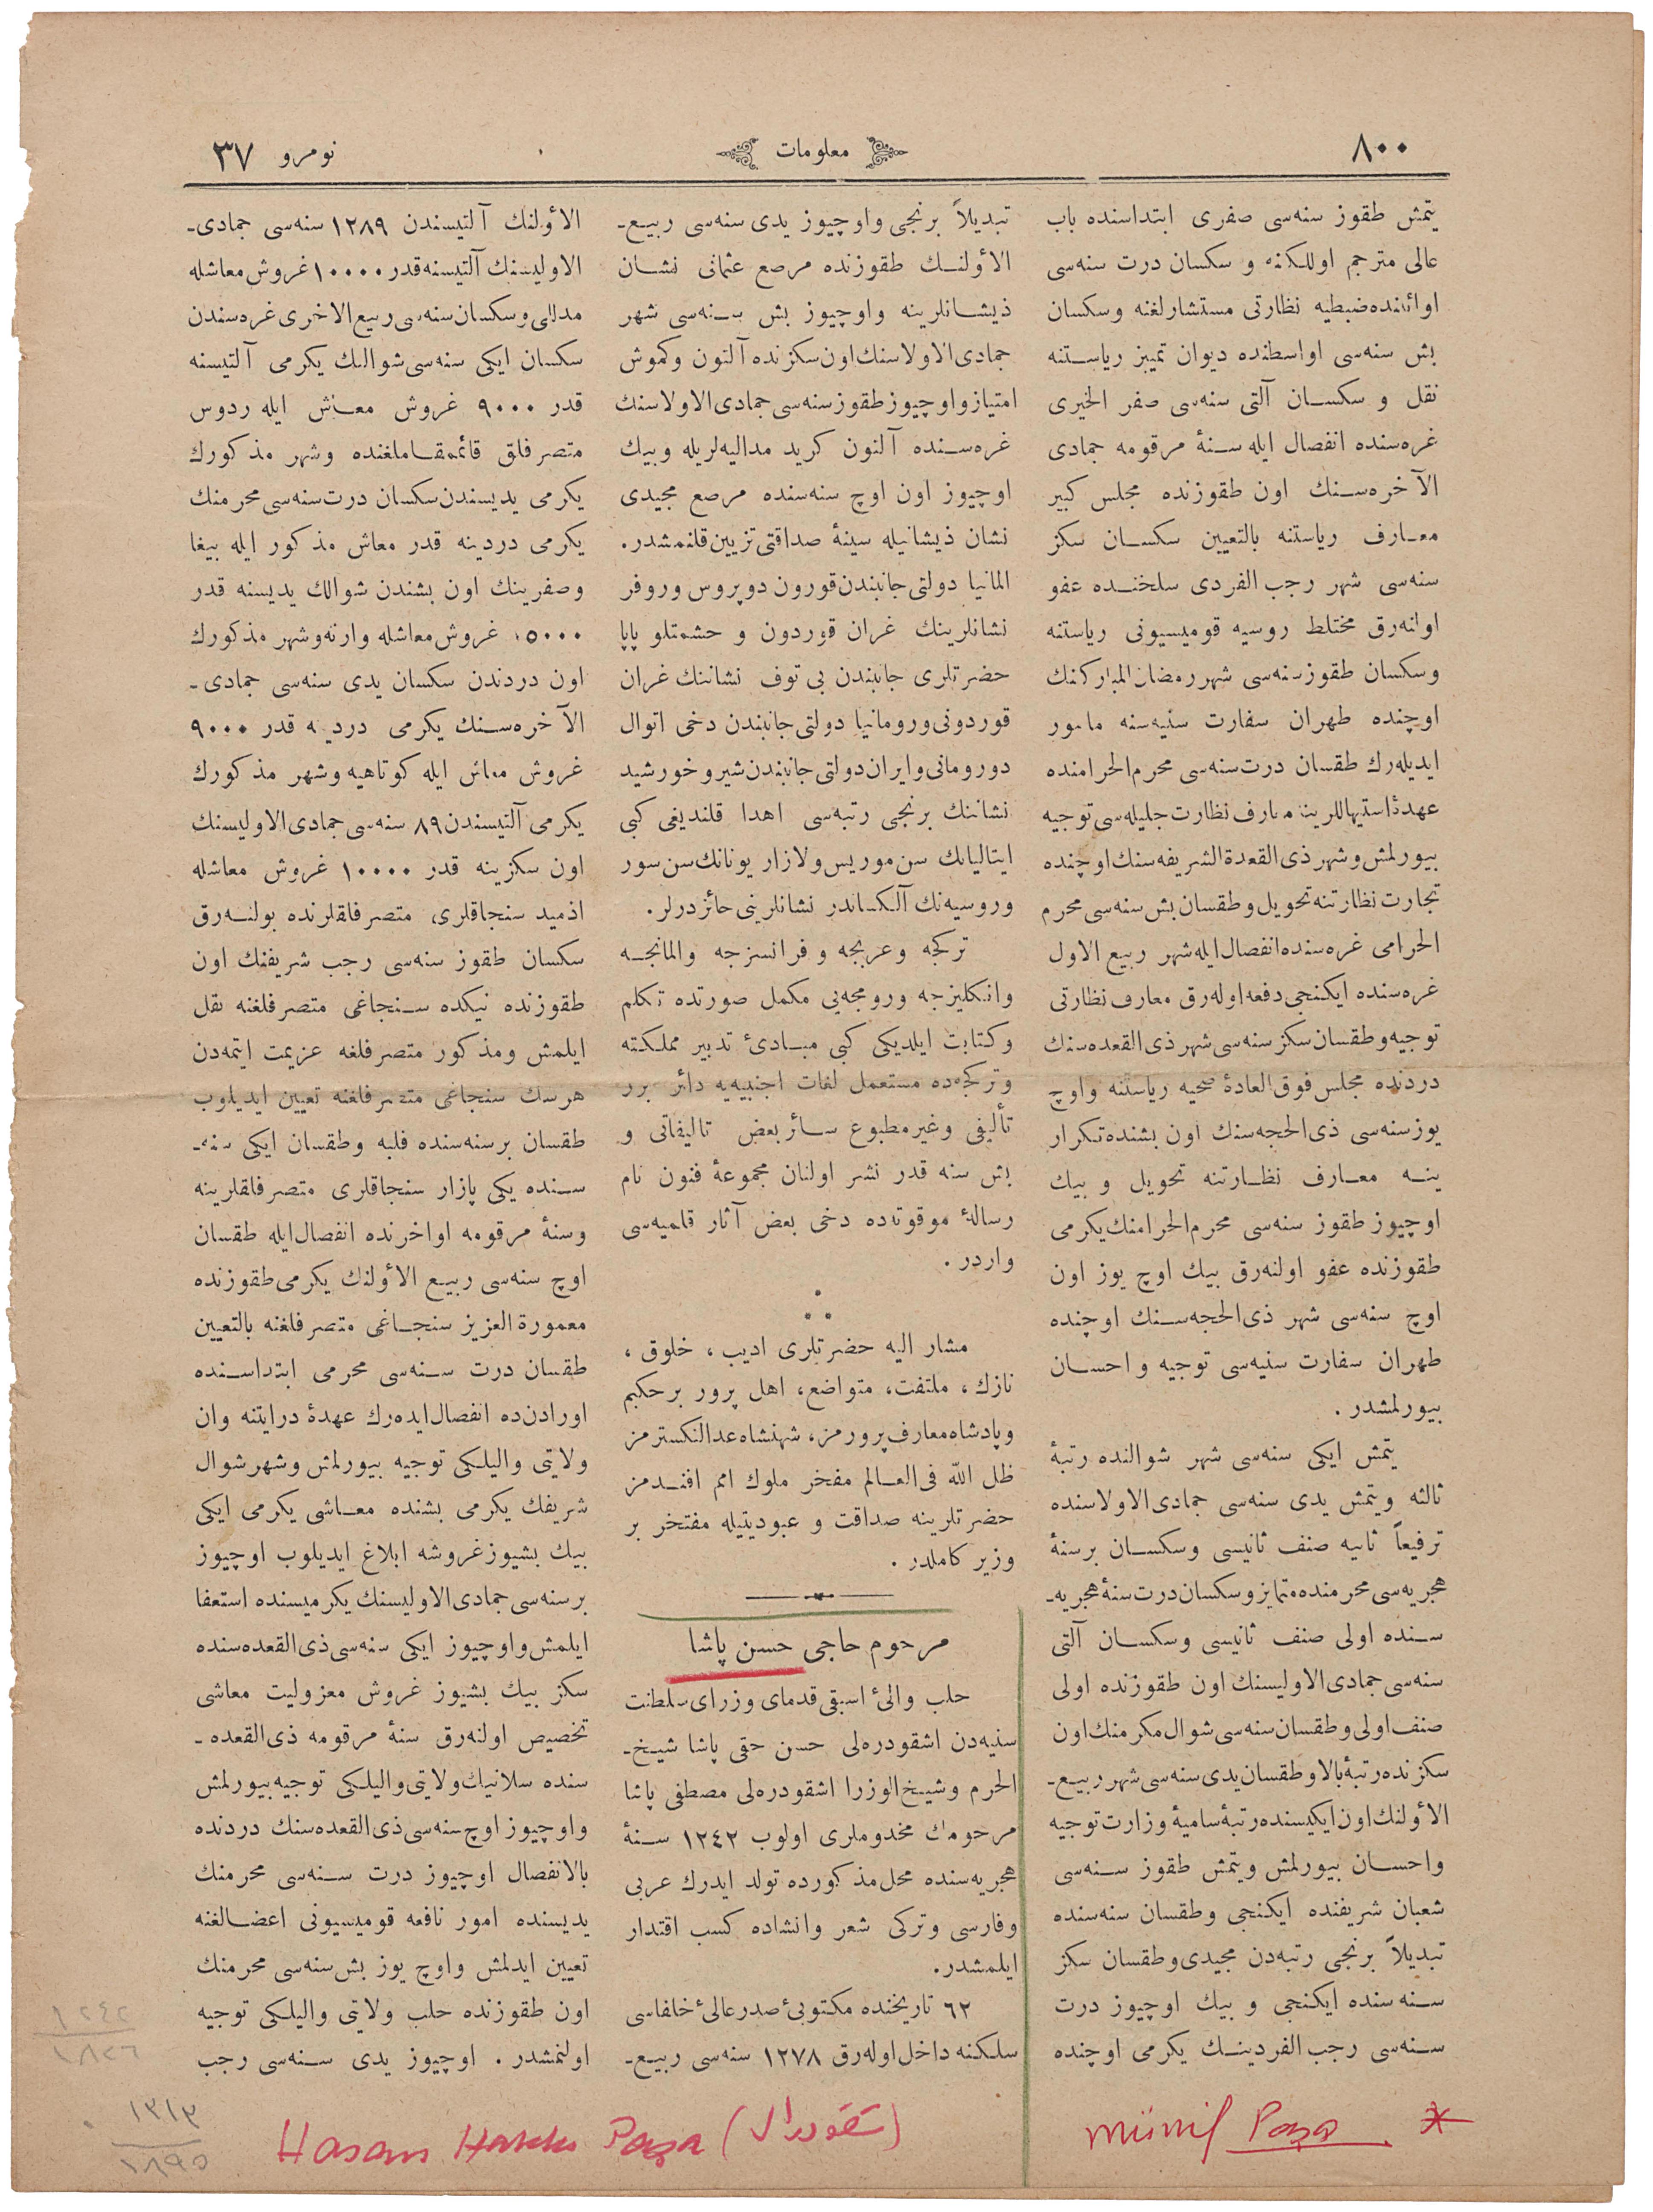 ٨٠٠
معلومات
نومرو ٣٧
يتمش طقوز سنه‌سى صفرى ابتداسنده باب
عالى مترجم اوللكنه و سكسان درت سنه‌سى
اوائلنده ضبطيه نظارتى مستشارلغنه وسكسان
بش سنه‌سى اواسطنده ديوان تمييز رياستنه
نقل و سكسان آلتى سنه‌سى صفر الخيرى
غره‌سنده انفصال ايله سنۀ مرقومه جمادى
الآخره‌سنك اون طقوزنده مجلس كبير
معارف رياستنه بالتعيين سكسان سكز
سنه‌سى شهر رجب الفردى سلخنده عفو
اولنه‌رق مختلط روسيه قوميسيونى رياستنه
وسكسان طقوز سنه‌سى شهر رمضان المباركنك
اوچنده طهران سفارت سنيه‌سنه مامور
ايديله‌رك طقسان درت سنه‌سى محرم الحرامنده
عهدۀ استيهاللرينه معارف نظارت جليله‌سى توجيه
بيورلمش وشهر ذى القعدة الشريفه‌سنك اوچنده
تجارت نظارتنه تحويل وطقسان بش سنه‌سى محرم
الحرامى غره‌سنده انفصال ايله شهر ربيع الاول
غره‌سنده ايكنجى دفعه اوله‌رق معارف نظارتى
توجيه وطقسان سكز سنه‌سى شهر ذى القعده‌سنك
دردنده مجلس فوق العادۀ صحيه رياستنه واوچ
يوز سنه‌سى ذى الحجه‌سنك اون بشنده تكرار
ينه معارف نظارتنه تحويل و بيك
اوچيوز طقوز سنه‌سى محرم الحرامنك يكرمى
طقوزنده عفو اولنه‌رق بيك اوچ يوز اون
اوچ سنه‌سى شهر ذى الحجه‌سنك اوچنده
طهران سفارت سنيه‌سى توجيه و احسان
بيورلمشدر .
يتمش ايكى سنه‌سى شهر شوالنده رتبۀ
ثالثه ويتمش يدى سنه‌سى جمادى الاولاسنده
ترفيعاً ثانيه صنف ثانيسى وسكسان برسنۀ
هجريه‌سى محرمنده متمايز وسكسان درت سنۀ هجريه‌-
سنده اولى صنف ثانيسى وسكسان آلتى
سنه‌سى جمادى الاوليسنك اون طقوزنده اولى
صنف اولى وطقسان سنه‌سى شوال مكرمنك اون
سكزنده رتبۀ بالا وطقسان يدى سنه‌سى شهر ربيع-
الأولنك اون ايكيسنده رتبۀ ساميۀ وزارت توجيه
واحسان بيورلمش ويتمش طقوز سنه‌سى
شعبان شريفنده ايكنجى وطقسان سنه‌سنده
تبديلاً برنجى رتبه‌دن مجيدى وطقسان سكز
سنه‌سنده ايكنجى و بيك اوچيوز درت
سنه‌سى رجب الفردينك يكرمى اوچنده
تبديلاً برنجى واوچيوز يدى سنه‌سى ربيع-
الأولنك طقوزنده مرصع عثمانى نشان
ذيشانلرينه واوچيوز بش سنه‌سى شهر
جمادى الاولاسنك اون سكزنده آلتون وكموش
امتياز واوچيوز طقوز سنه‌سى جمادى الاولاسنك
غره‌سنده آلتون كريد مداليه‌لريله وبيك
اوچيوز اون اوچ سنه‌سنده مرصع مجيدى
نشان ذيشانيله سينۀ صداقتى تزيين قلنمشدر.
المانيا دولتى جانبندن قورون دو پروس وروفر
نشانلرينك غران قوردون و حشمتلو پاپا
حضرتلرى جانبندن بى توف نشاننك غران
قوردونى ورومانيا دولتى جانبندن دخى اتوال
دو رومانى وايران دولتى جانبندن شير و خورشيد
نشاننك برنجى رتبه‌سى اهدا قلنديغى كبى
ايتاليانك سن موريس ولازار يونانك سن سور
وروسيه‌نك آلكساندر نشانلرينى حائزدرلر.
تركجه وعربجه و فرانسزجه والمانجه
وانكليزجه ورومجه‌يى مكمل صورتده تكلم
وكتابت ايلديكى كبى مبادئ تدبير مملكته
وتركجه‌ده مستعمل لغات اجنبيه‌يه دائر برر
تأليفى وغير مطبوع سائر بعض تاليفاتى و
بش سنه قدر نشر اولنان مجموعۀ فنون نام
رسالۀ موقوته‌ده دخى بعض آثار قلميه‌سى
واردر .
مشار اليه حضرتلرى اديب ، خلوق ،
نازك ، ملتفت، متواضع، اهل پرور برحكيم
وپادشاه معارف پرورمز، شهنشاه عدالتكسترمز
ظل اللّه فى العالم مفخر ملوك امم افندمز
حضرتلرينه صداقت و عبوديتيله مفتخر بر
وزير كاملدر .
مرحوم حاجى حسن پاشا
حلب والئ اسبقى قدماى وزراى سلطنت
سنيه‌دن اشقودره‌لى حسن حقى پاشا شيخ-
الحرم وشيخ الوزرا اشقودره‌لى مصطفى پاشا
مرحومك مخدوملرى اولوب ١٢٤٢ سنۀ
هجريه‌سنده محل مذكورده تولد ايدرك عربى
وفارسى وتركى شعر وانشاده كسب اقتدار
ايلمشدر.
٦٢ تاريخنده مكتوبئ صدر عالئ خلفاسى
سلكنه داخل اوله‌رق ١٢٧٨ سنه‌سى ربيع-
الأولنك آلتيسندن ١٢٨٩ سنه‌سى جمادى-
الاوليسنك آلتيسنه قدر ١٠٠٠٠ غروش معاشله
مدللى وسكسان سنه‌سى ربيع الاخرى غره‌سندن
سكسان ايكى سنه‌سى شوالك يكرمى آلتيسنه
قدر ٩٠٠٠ غروش معاش ايله ردوس
متصرفلق قائممقاملغنده وشهر مذكورك
يكرمى يديسندن سكسان درت سنه‌سى محرمنك
يكرمى دردينه قدر معاش مذكور ايله بيغا
وصفرينك اون بشندن شوالك يديسنه قدر
٥٠٠٠ غروش معاشله وارنه وشهر مذكورك
اون دردندن سكسان يدى سنه‌سى جمادى-
الآخره‌سنك يكرمى دردينه قدر ٩٠٠٠
غروش معاش ايله كوتاهيه وشهر مذكورك
يكرمى آلتيسندن ٨٩ سنه‌سى جمادى الاوليسنك
اون سكزينه قدر ١٠٠٠٠ غروش معاشله
ازميد سنجاقلرى متصرفلقلرنده بولنه‌رق
سكسان طقوز سنه‌سى رجب شريفنك اون
طقوزنده نيكده سنجاغى متصرفلغنه نقل
ايلمش ومذكور متصرفلغه عزيمت ايتمه‌دن
هرسك سنجاغى متصرفلغنه تعيين ايديلوب
طقسان برسنه‌سنده فلبه وطقسان ايكى سنه‌-
سنده يكى پازار سنجاقلرى متصرفلقلرينه
وسنۀ مرقومه اواخرنده انفصال ايله طقسان
اوچ سنه‌سى ربيع الأولنك يكرمى طقوزنده
معمورة العزيز سنجاغى متصرفلغنه بالتعيين
طقسان درت سنه‌سى محرمى ابتداسنده
اورادن‌ده انفصال ايده‌رك عهدۀ درايتنه وان
ولايتى واليلكى توجيه بيورلمش وشهر شوال
شريفك يكرمى بشنده معاشى يكرمى ايكى
بيك بشيوز غروشه ابلاغ ايديلوب اوچيوز
برسنه‌سى جمادى الاوليسنك يكرميسنده استعفا
ايلمش واوچيوز ايكى سنه‌سى ذى القعده‌سنده
سكز بيك بشيوز غروش معزوليت معاشى
تخصيص اولنه‌رق سنۀ مرقومه ذى القعده‌-
سنده سلانيك ولايتى واليلكى توجيه بيورلمش
واوچيوز اوچ سنه‌سى ذى القعده‌سنك دردنده
بالانفصال اوچيوز درت سنه‌سى محرمنك
يديسنده امور نافعه قوميسيونى اعضالغنه
تعيين ايدلمش واوچ يوز بش سنه‌سى محرمنك
اون طقوزنده حلب ولايتى واليلكى توجيه
اولنمشدر . اوچيوز يدى سنه‌سى رجب
* Münif Paşa
Hasan Hakkı Paşa (اشقودرالى)
١٢٤٢
١٨٢٦
١٣١٣
١٨٩٥